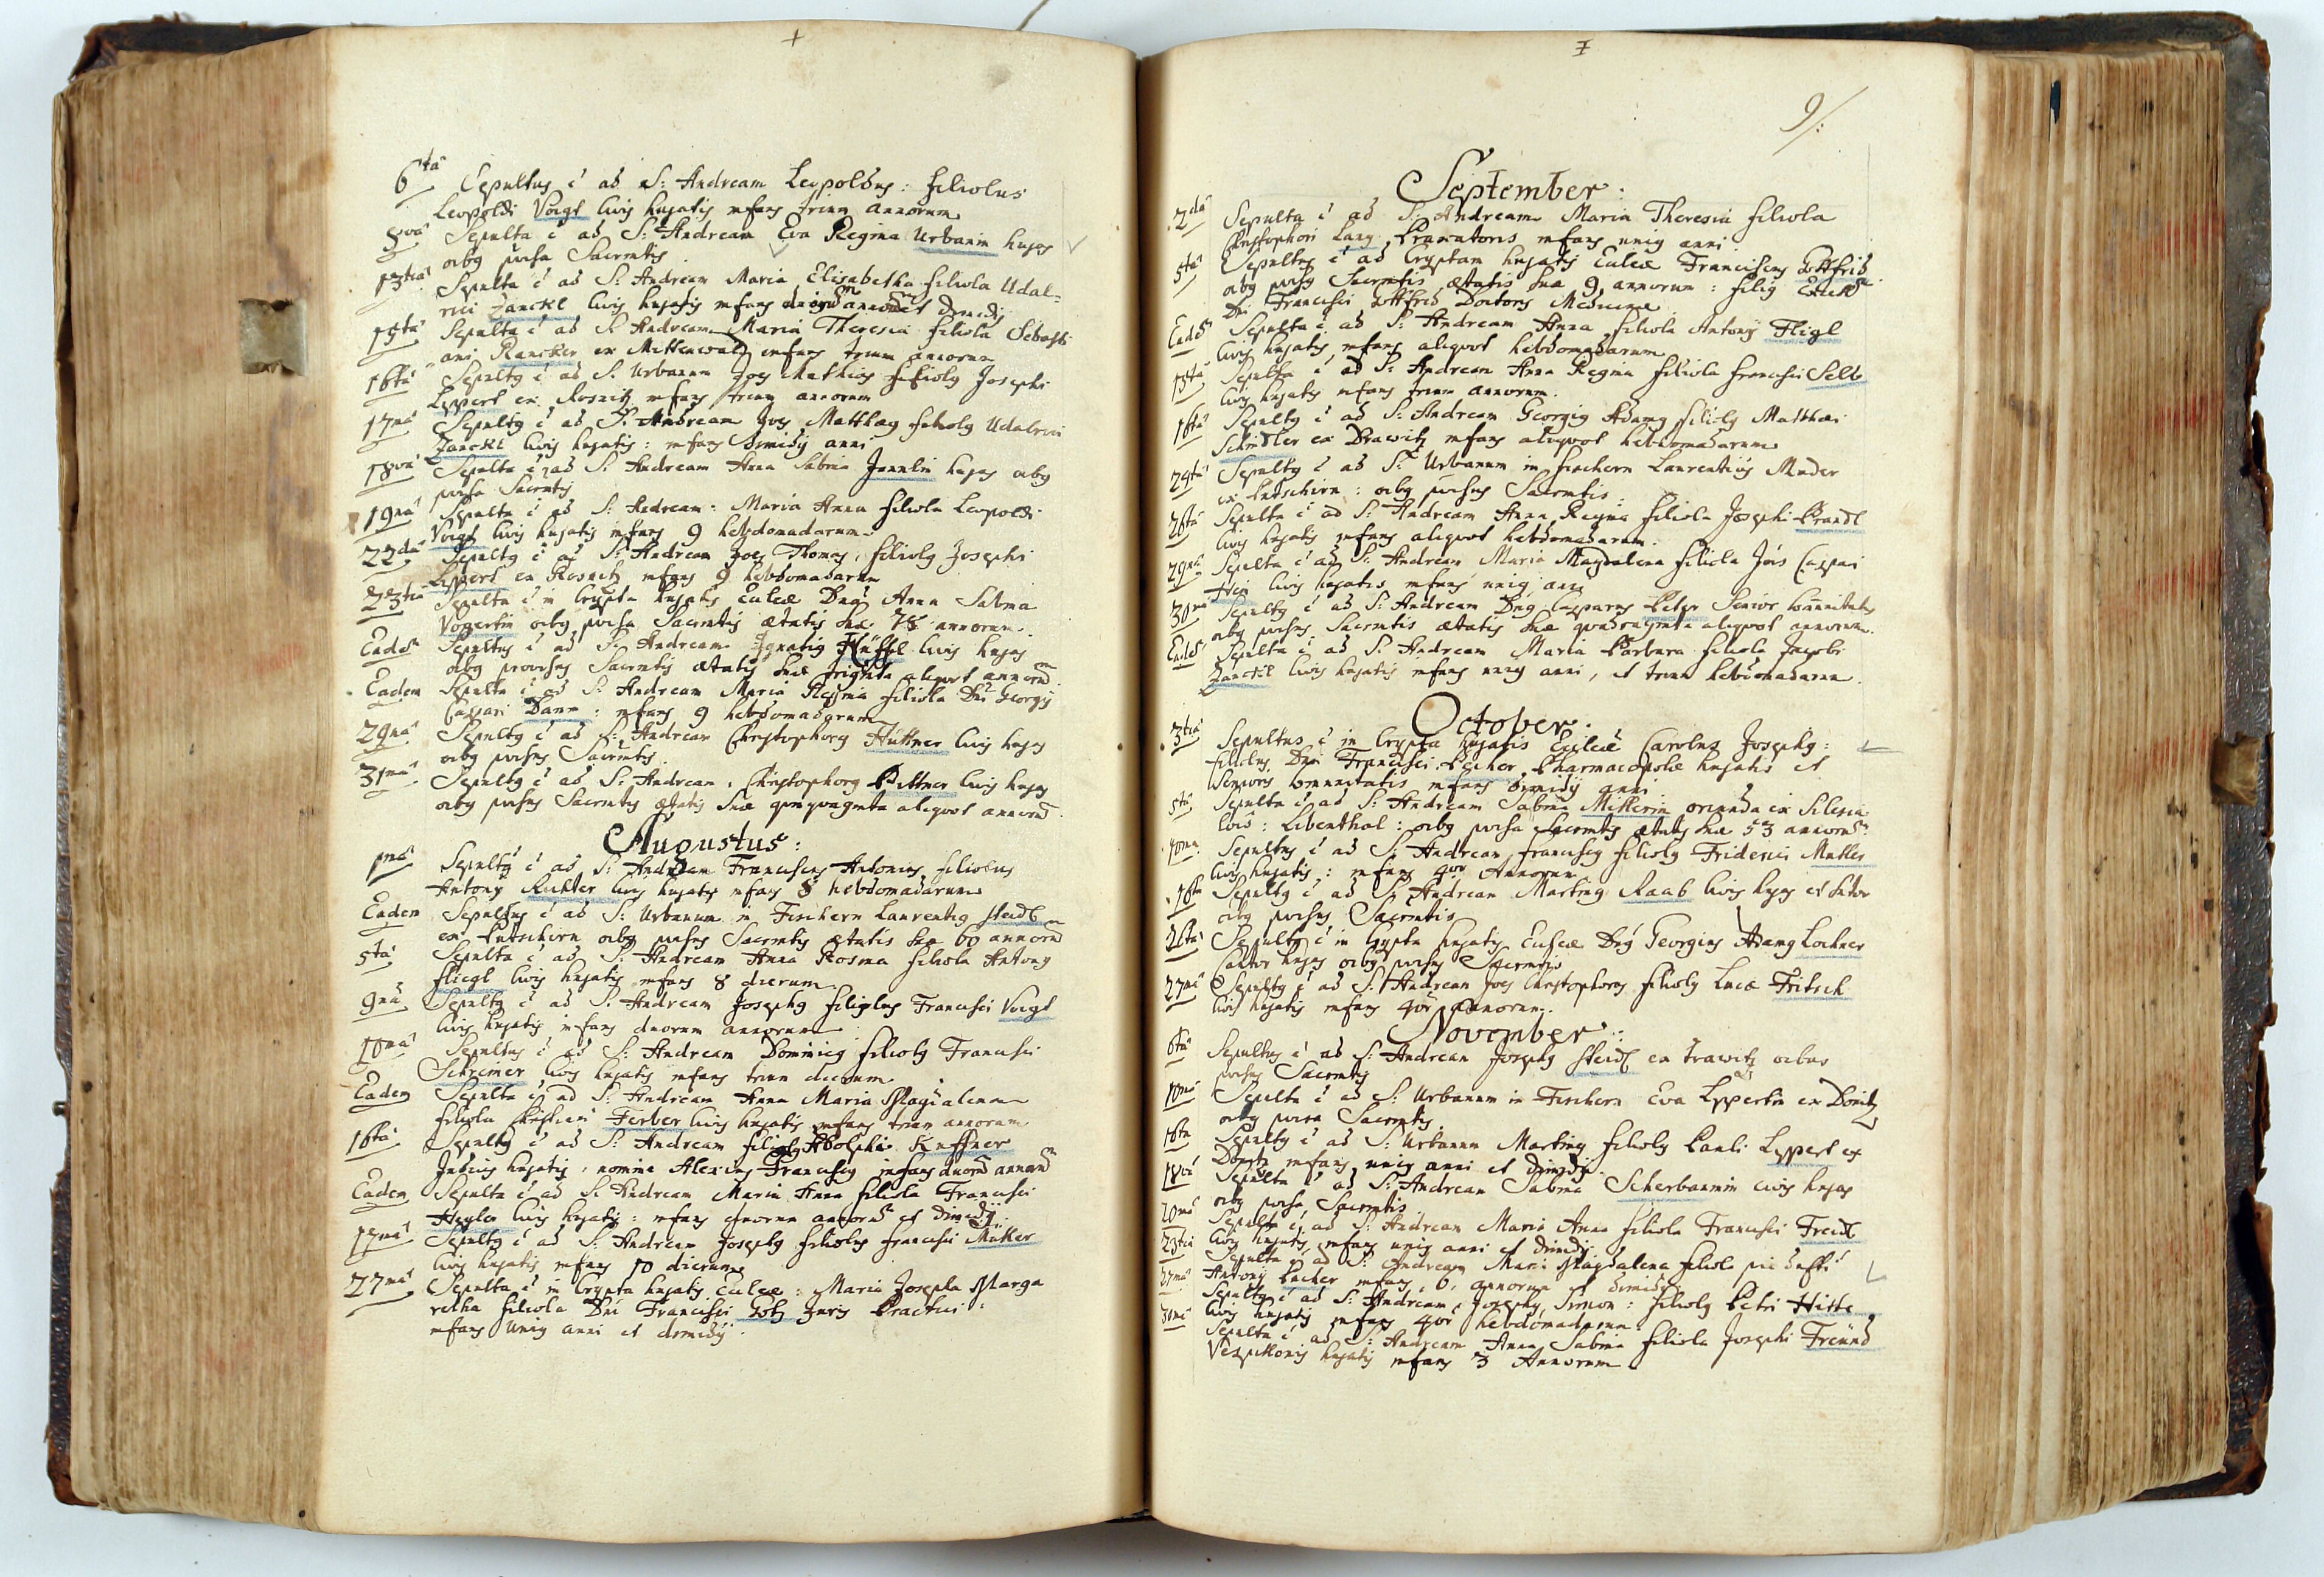 6ta Sepultus e ad S: Andream Leopoldus: filiolus
Leopoldi Voigt Civis hujatis infans trium annorum
8va Sepulta e ad S: Andream Eva Regina Urbanin hujas
orbg provisa Sacrmtis
13tia Sepulta e ad S: Andream Maria Elisabetha filiola Udal-
rici Zanckl Civis hujatis infans annorum et dimidij
15ta Sepulta e ad S: Andream Maria Theresia filiola Sebasti
ani Rancker ex Mittenwald infans trium annorum
16ta Sepultg e ad S: Urbanum Joes Mathias filiolg Josephi
Lippert ex Rosnitz infans trium annorum
17ma Sepultg e ad S: Andream Joes Matthæg filiolg Udalrici
Zanckl Civis hujatis: infans dimidij anni
18va Sepulta e ad S: Andream Anna Sabina hujas orbg
provisa Sacrmtis
19na Sepulta e ad S: Andream: Maria Anna filiola Leopoldi
Voigt Civis hujatis infans 9 hebdomadarum
22da Sepultg e ad S: Andream Joes Thomas, filiolg Josephi
Lippert ex Rosnitz infans 9 hebdomadarum
23tia Sepulta e in Crypta hujatis Eccleæ Dna Anna Sabina
Vogertin orbg provisa Sacrmtis ætatis suæ 78 annorum.
Ead Sepultus e ad S: Andream Ignatig Civis hujas
orbg provisus Sacrmtis ætatis suæ triginta aliquot annorum
Eadem Sepulta e ad S: Andream Maria Regina filiola Dni Georgij
Caspari Dann: infans 9 hebdomadarum
29na Sepultg e ad S: Andream Christophorg Hüttner Civis hujas
orbg provisus Sacrmtis
31ma Sepultg e ad S: Andream, Christophorg Bittner Civis hujas
orbg provisus Sacrmtis ætatis suæ quinquaginta aliquot annorum
Augustus:
1ma Sepultg e ad S: Andream Franciscus Antonius filiolus
Antonij Richter Civis hujatis infans 8 hebdomadarum
Eadem Sepultus e ad S: Urbanum in Fischern Laurentig Steidl
ex Putschirn orbg provisus Sacrmtis ætatis suæ 60 annorum
5ta Sepulta e ad S: Andream Anna Rosina filiola Antonij
Fliegl Civis hujatis infans 8 dierum
9na Sepultg e ad S: Andream Josephg filiolus Francisci Voigt
Civis hujatis infans duorum annorum
10ma Sepultus e ad S: Andream Dominicg filiolg Francisci
Schremer Civis hujatis infans trium dierum
Eadem Sepulta e ad S: Andream Anna Maria Magdalena
filiola Christiani Ferber Civis hujatis infans trium annorum
16ta Sepultg e ad S: Andream filiolg Adolphi Kuffner
Judicis hujatis, nomine Alexius Franciscg infans duorum annorum
Eadem Sepulta e ad S: Andream Maria Anna filiola Francisci
Hegler Civis hujatis: infans duorum annorum et dimidij
17ma Sepultg e ad S: Andream Josephg filiolus Francisci Müller
Civis hujatis infans 10 dierum
27ma Sepulta e in Crypta hujatis Eccleæ: Maria Josepha Marga
retha filiola Dni Francisci Götz Juris Practici:
infans Unig anni et dimidij.
9/:
September:
2da Sepulta e ad S: Andream Maria Theresia filiola
Christophori Lang Procuratoris infans unig anni
5ta Sepultus e ad Cryptam hujatis Eccleæ Franciscus Gottfrid
orbg provisg Sacrmtis ætatis suæ 9 annorum: filig
Dni Francisci Gottfrid Doctoris Medicinæ
Ead Sepulta e ad S: Andream Anna filiola Antonij Fligl
Civis hujatis, infans aliquot hebdomadarum
15ta Sepulta e ad S: Andream Anna Regina filiola Francisci
Civis hujatis infans trium annorum.
16ta Sepultg e ad S: Andream Georgig Adamg filiolg Matthæi
Schindler ex Drawitz infans aliquot hebdomadarum
24ta Sepultg e ad S: Urbanum in Fischern Laurentius Mader
ex Putschirn: orbg provisus Sacrmtis
26ta Sepulta e ad S: Andream Anna Regina filiola Josephi Brandl
Civis hujatis infans aliquot hebdomadarum
29na Sepulta e ad S: Andream Maria Magdalena filiola Jois Caspari
Civis hujatis infans unig anni
30ma Sepultg e ad S: Andream Dng Casparus Peter Senior Communitatis
orbg provisus Sacrmtis ætatis suæ quadraginta aliquot annorum.
Ead Sepulta e ad S: Andream Maria Barbara filiola Jacobi
Zanckl Civis hujatis infans unig anni, et trium hebdomadarum.
October.
3tia Sepultus e in Crypta hujatis Eccleæ Carolus Josephg:
filiolus Dni Francisci Becher Pharmacopolæ hujatis et
Senioris Communitatis infans dimidij anni
5ta Sepulta e ad S: Andream Sabina Millerin oriunda ex Silesia
Libenthal: orbg provisa Sacrmtis ætatis suæ 53 annorum
10ma Sepultus e ad S: Andream Franciscg filiolg Friderici Müller
Civis hujatis: infans 4or Annorum
16ta Sepultg e ad S: Andream Marting Raab Civis hujas et Sutor
orbg provisus Sacrmtis
26ta Sepultg e in Crypta hujatis Eccleæ Dng Georgius Adamg Lochner
Cantor hujas orbg provisus Sacrmtis
27ma Sepultg e ad S: Andream Joes Christophorus filiolg Lucæ Fritsch
Civis hujatis infans 4or annorum.
November:
6ta Sepultus e ad S: Andream Josephg Steidl ex Trawitz orbus
provisus Sacrmtis
10ma Sepulta e ad S: Urbanum in Fischern Eva Lippertin ex Donitz
orbg provisa Sacrmtis
16ta Sepultg e ad S: Urbanum Marting filiolg Pauli Lippert ex
Donitz infans unig anni et dimidij
18va Sepulta e ad S: Andream Sabina Scherbaumin civis hujas
orbg provisa Sacrmtis
20ma Sepulta e ad S: Andream Maria Anna filiola Francisci Freidl
Civis hujatis infans unig anni et dimidij
23tia Sepulta e ad S: Andream Maria Magdalena filiola pie defti
Antonij Becher infans, 6, annorum et dimidij
27ma Sepultg e ad S: Andream, Josephg Simon: filiolg Petri Hille
Civis hujatis infans 4or hebdomadarum
30ma Sepulta e ad S: Andream Anna Sabina filiola Josephi Freünd
Vespillonis hujatis infans 3 Annorum